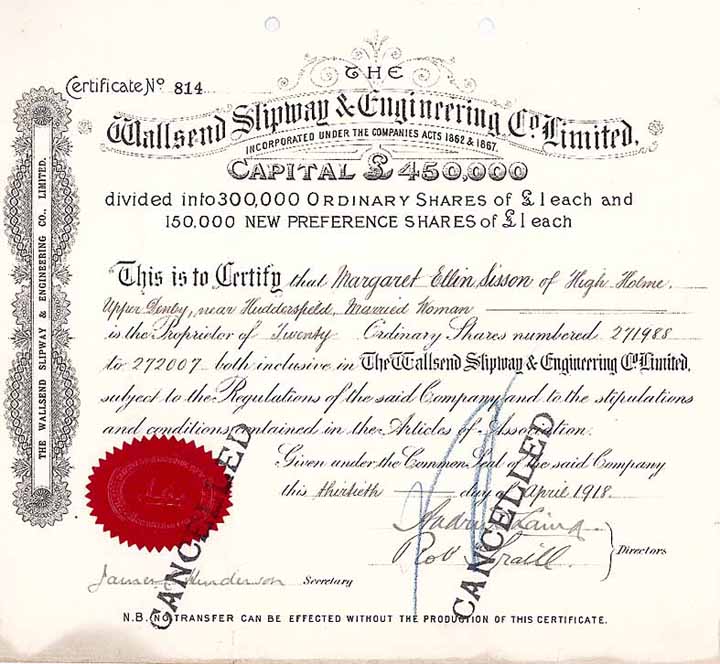 Certificate No 814
THE
Wallsend Slipway & Engineering Co. Limited.
INCORPORATED UNDER THE COMPANIES ACTS 1862 & 1867.
CAPITAL £450,000
divided into 300,000 ORDINARY SHARES of £1 each and
150,000 NEW PREFERENCE SHARES of £1 each
THE WALLSEND SLIPWAY & ENGINEERING CO., LIMITED.
This is to Certify that Margaret Ellin Sisson of High Holme,
Upper Denby, near Huddersfield, Married Woman
is the Proprietor of Twenty Ordinary Shares numbered 271988
to 272007 both inclusive in The Wallsend Slipway & Engineering Co Limited,
subject to the Regulations of the said Company and to the stipulations
and conditions contained in the Articles of Association.
Given under the Common Seal of the said Company
this thirtieth day of April 1918.
Andrew Laing
Rob Traill
Directors
James Henderson Secretary
CANCELLED
CANCELLED
N.B. NO TRANSFER CAN BE EFFECTED WITHOUT THE PRODUCTION OF THIS CERTIFICATE.